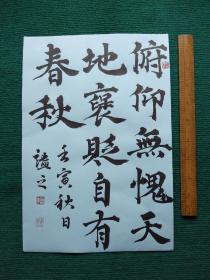 俯仰無愧天
地襃貶自有
春秋
壬寅秋日
謐之